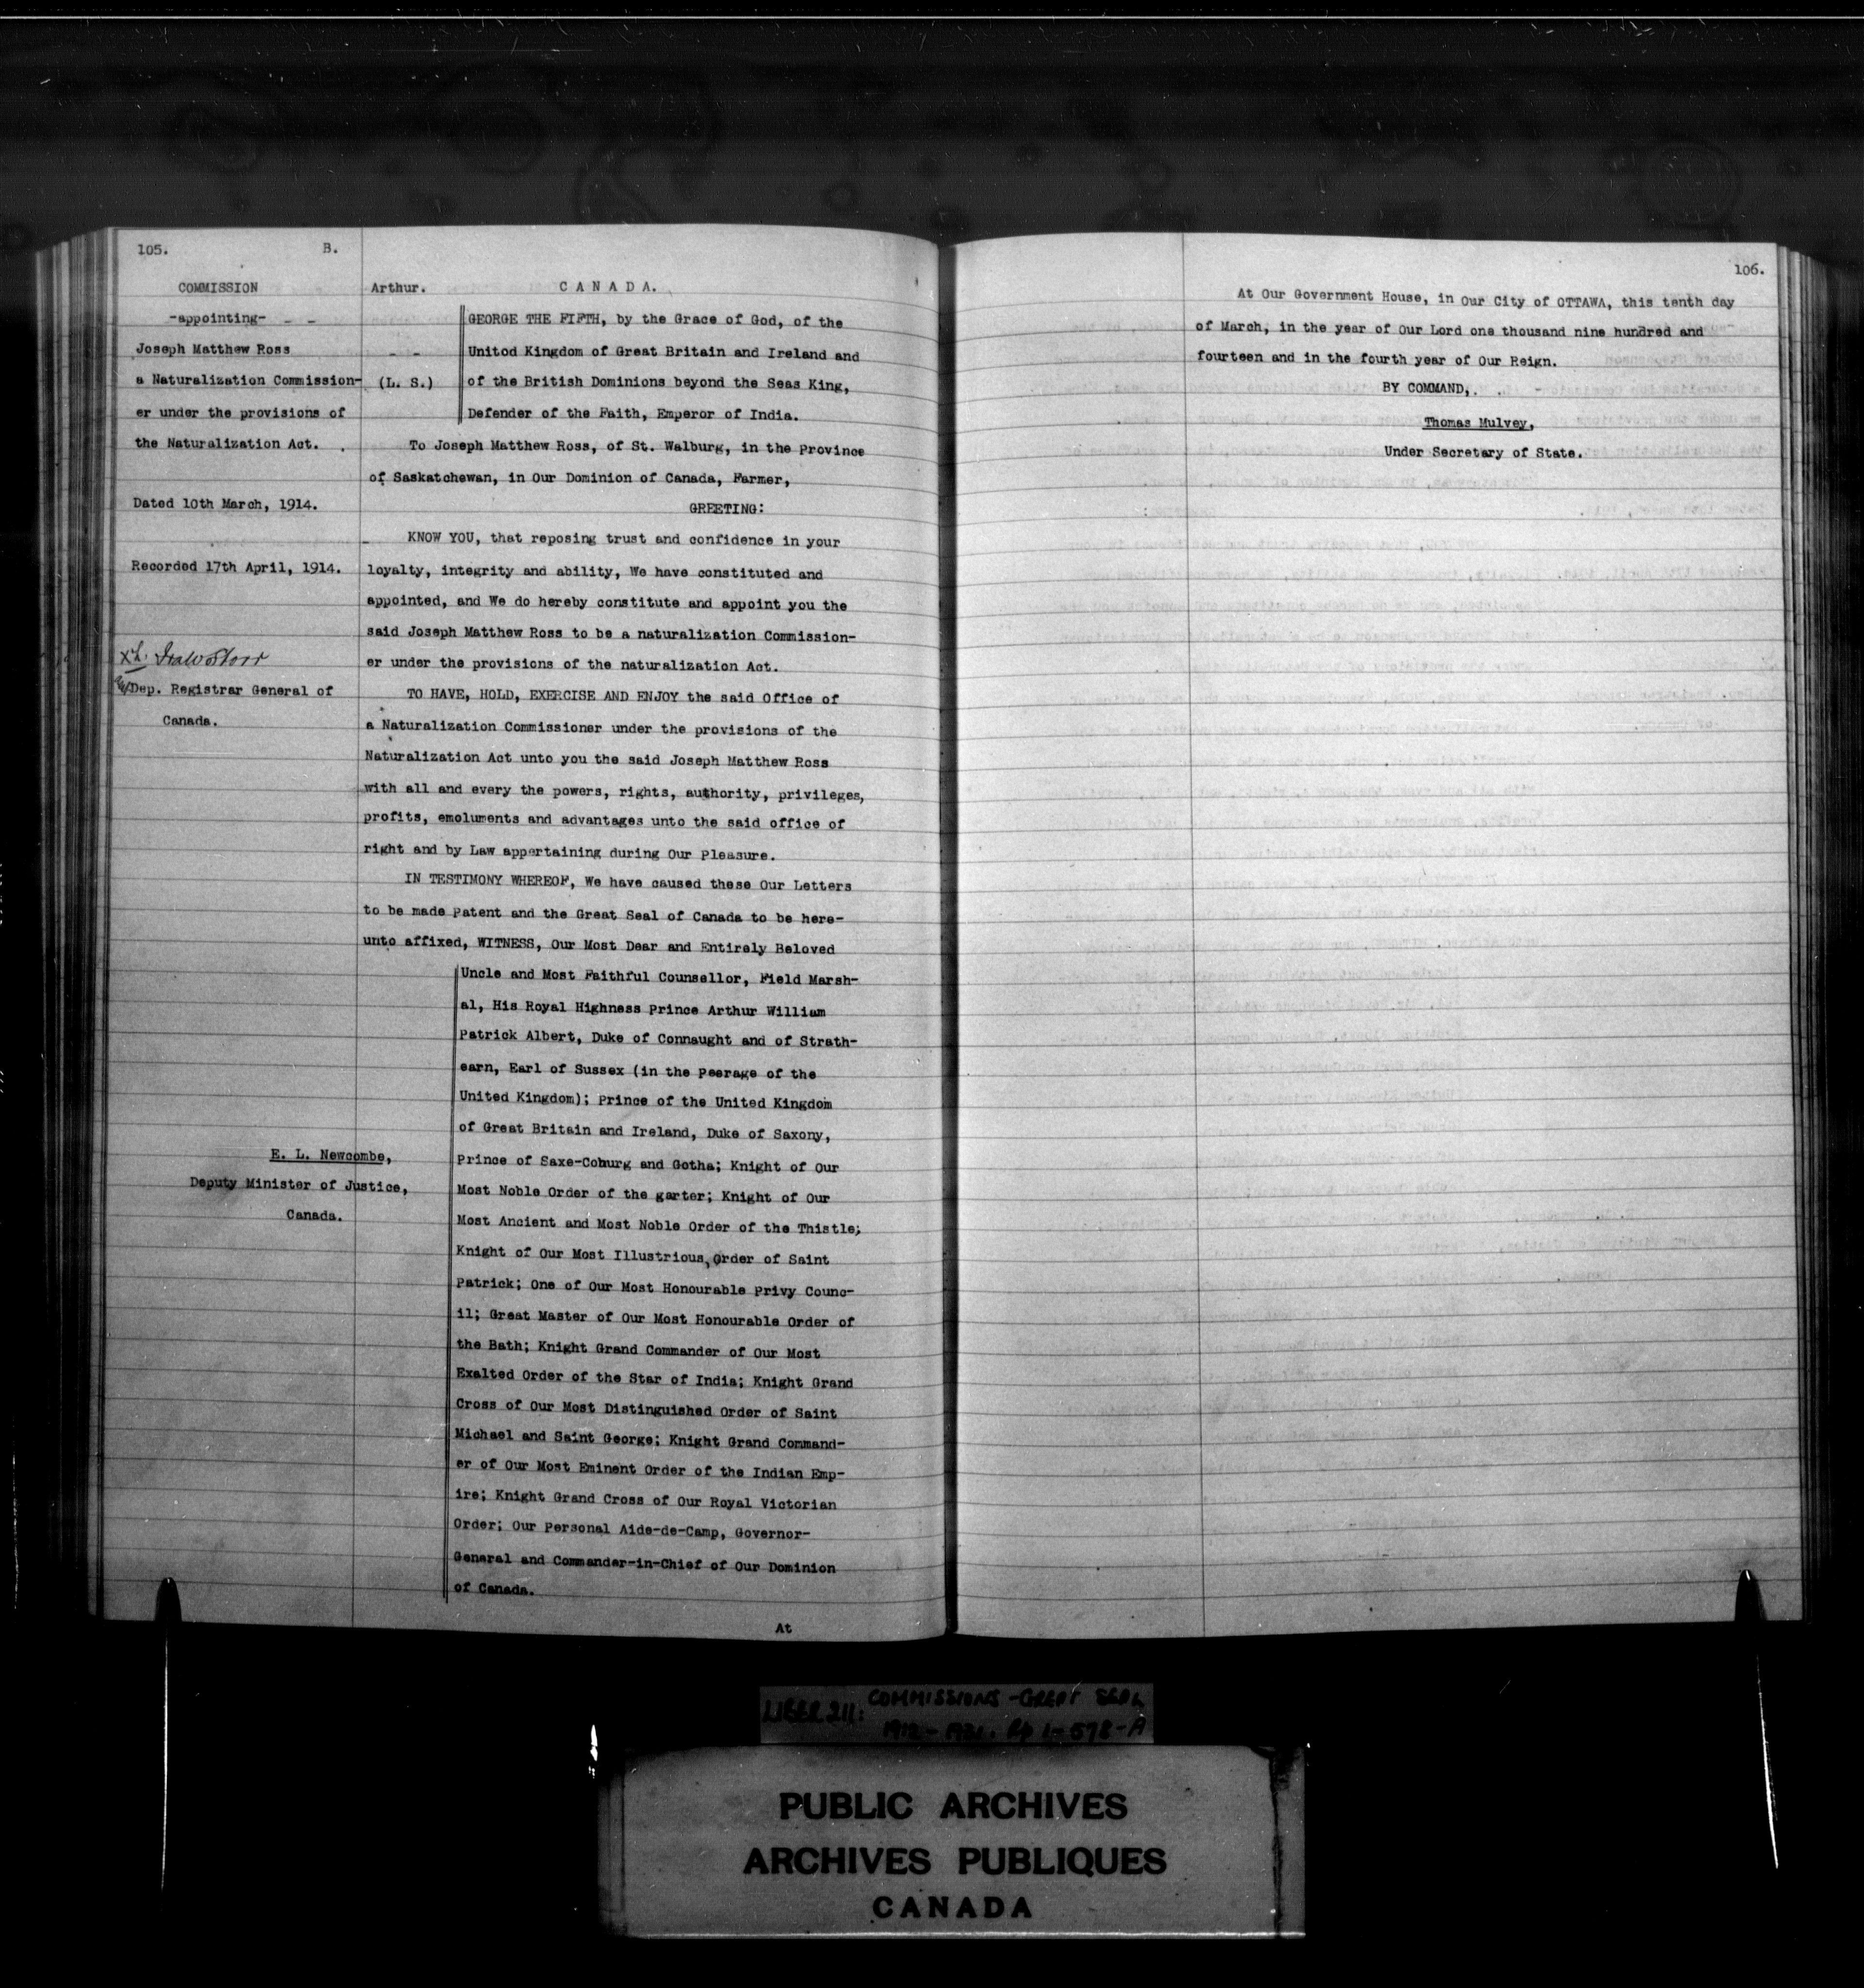 105. B.
COMMISSION
-appointing- - -
Joseph Matthew Ross
a Naturalization Commission-
er under the provisions of
the Naturalization Act.
Dated 10th March, 1914.
Recorded 17th April, 1914.
Dep. Registrar General of
Canada.
E. L. Newcombe,
Deputy Minister of Justice,
Canada.
Arthur. CANADA.
- -
(L. S.)
GEORGE THE FIFTH, by the Grace of God, of the
United Kingdom of Great Britain and Ireland and
of the British Dominions beyond the Seas King,
Defender of the Faith, Emperor of India.
To Joseph Matthew Ross, of St. Walburg, in the Province
of Saskatchewan, in Our Dominion of Canada, Farmer,
GREETING:
KNOW YOU, that reposing trust and confidence in your
loyalty, integrity and ability, We have constituted and
appointed, and We do hereby constitute and appoint you the
said Joseph Matthew Ross to be a naturalization Commission-
er under the provisions of the naturalization Act.
TO HAVE, HOLD, EXERCISE AND ENJOY the said Office of
a Naturalization Commissioner under the provisions of the
Naturalization Act unto you the said Joseph Matthew Ross
with all and every the powers, rights, authority, privileges,
profits, emoluments and advantages unto the said office of
right and by Law appertaining during Our Pleasure.
IN TESTIMONY WHEREOF, We have caused these Our Letters
to be made Patent and the Great Seal of Canada to be here-
unto affixed, WITNESS, Our Most Dear and Entirely Beloved
Uncle and Most Faithful Counsellor, Field Marsh-
al, His Royal Highness Prince Arthur William
Patrick Albert, Duke of Connaught and of Strath-
earn, Earl of Sussex (in the Peerage of the
United Kingdom); Prince of the United Kingdom
of Great Britain and Ireland, Duke of Saxony,
Prince of Saxe-Coburg and Gotha; Knight of Our
Most Noble Order of the garter; Knight of Our
Most Ancient and Most Noble Order of the Thistle;
Knight of Our Most Illustrious, Order of Saint
Patrick; One of Our Most Honourable Privy Counc-
il; Great Master of Our Most Honourable Order of
the Bath; Knight Grand Commander of Our Most
Exalted Order of the Star of India; Knight Grand
Cross of Our Most Distinguished Order of Saint
Michael and Saint George; Knight Grand Command-
er of Our Most Eminent Order of the Indian Emp-
ire; Knight Grand Cross of Our Royal Victorian
Order; Our Personal Aide-de-Camp, Governor-
General and Commander-in-Chief of Our Dominion
of Canada.
At
106.
At Our Government House, in Our City of OTTAWA, this tenth day
of March, in the year of Our Lord one thousand nine hundred and
fourteen and in the fourth year of Our Reign.
BY COMMAND,
Thomas Mulvey,
Under Secretary of State.
LIBER 211: COMMISSIONS - GREAT SEAL
1912-1921. Pp 1-578-A
PUBLIC ARCHIVES
ARCHIVES PUBLIQUES
CANADA